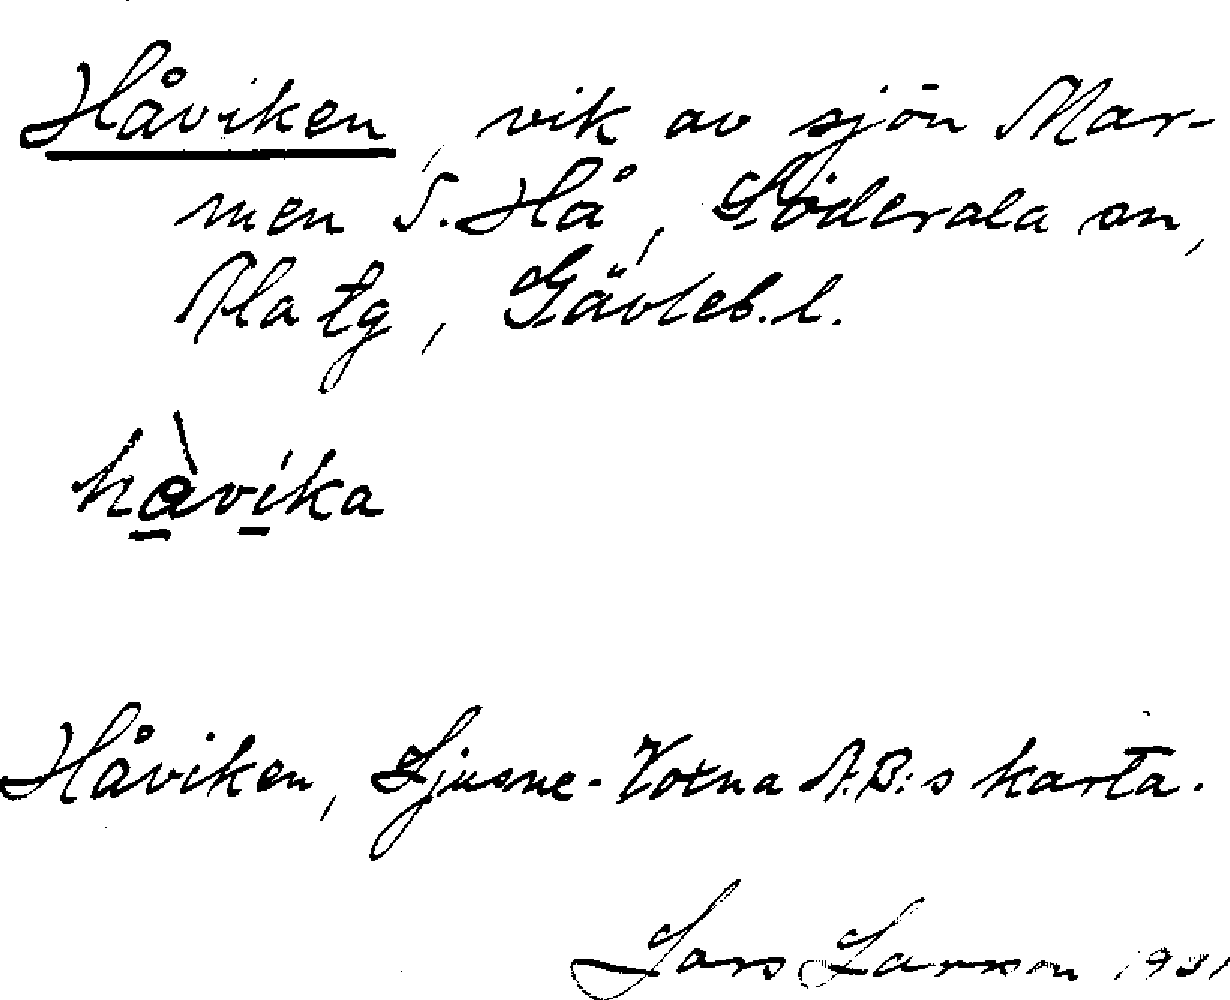 Håviken, vik av sjön Mar-
men S. Hå, Söderala sn,
Ala tg, Gävleb. l.
hàvika
Håviken, Ljusne-Voxna A.B:s karta.
Lars Larsson 1931